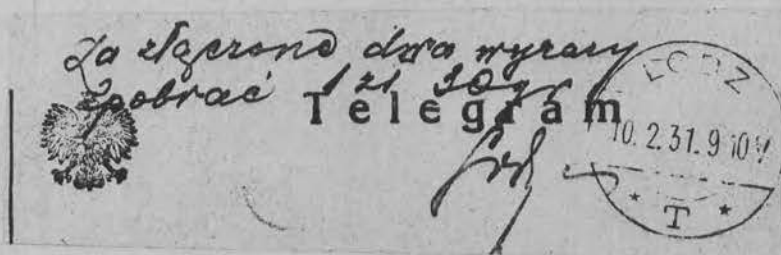 Za złączone dwa wyrazy
pobrać 1 zł 30 gr
Telegram
ŁÓDŹ
10.2.31.9 10 V
* T *